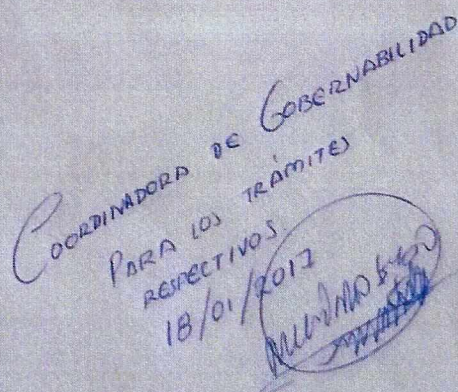 COORDINADORA DE GOBERNABILIDAD
PARA LOS TRÁMITES
RESPECTIVOS
18/01/2017